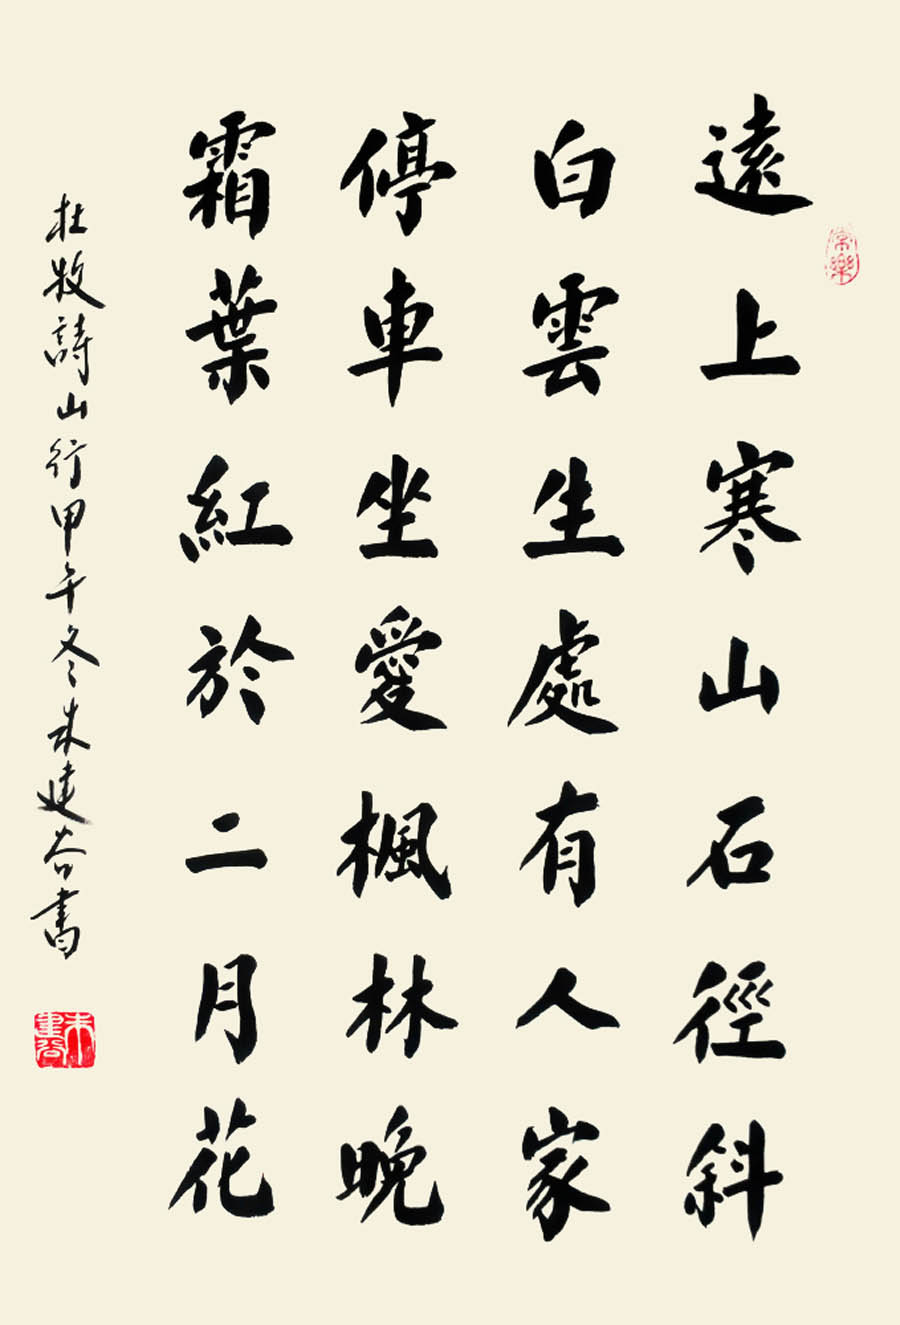 遠上寒山石徑斜
白雲生處有人家
停車坐愛楓林晚
霜葉紅於二月花
杜牧詩山行甲午冬朱建谷書